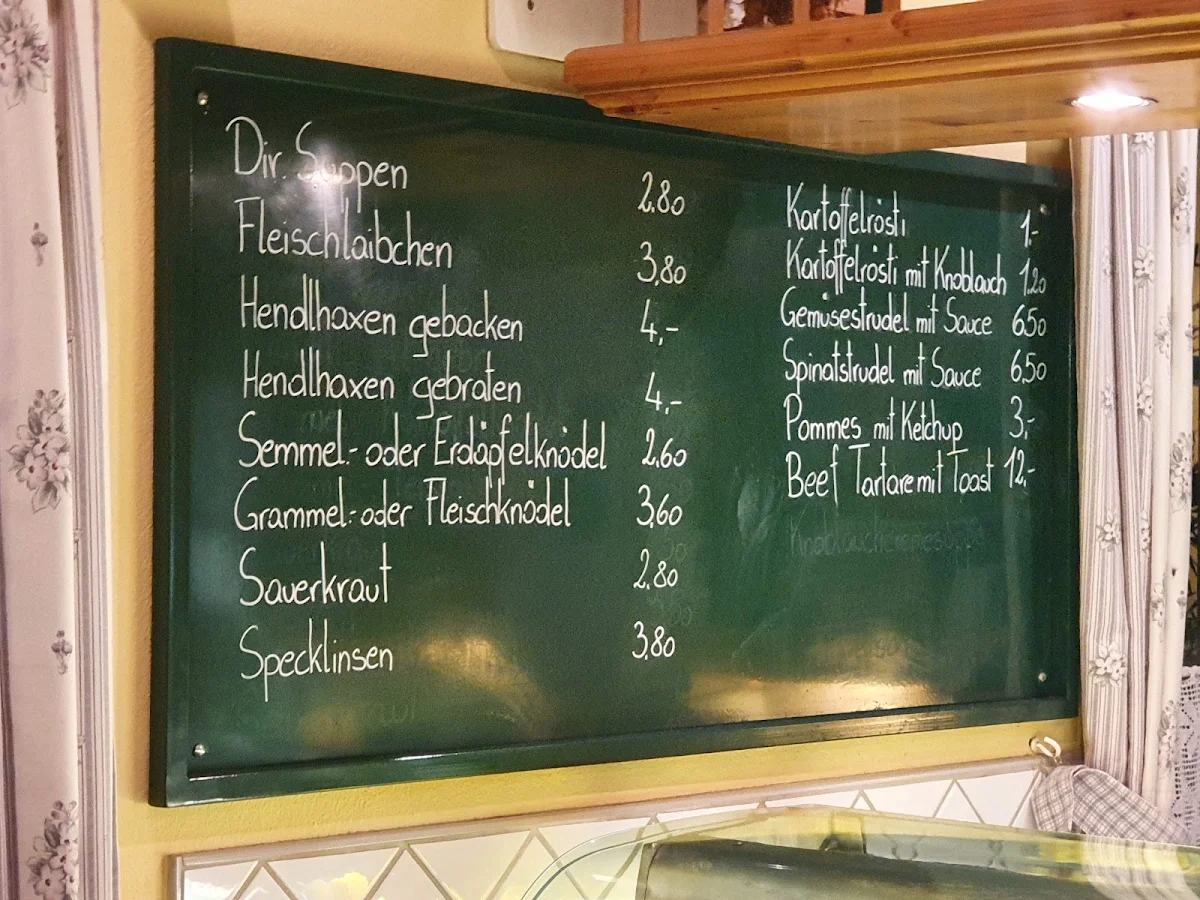 Dir. Suppen 2.80
Fleischlaibchen 3,80
Hendlhaxen gebacken 4,-
Hendlhaxen gebraten 4,-
Semmel- oder Erdäpfelknödel 2.60
Grammel- oder Fleischknödel 3,60
Sauerkraut 2,80
Specklinsen 3,80
Kartoffelrösti 1,-
Kartoffelrösti mit Knoblauch 1.20
Gemüsestrudel mit Sauce 6.50
Spinatstrudel mit Sauce 6.50
Pommes mit Ketchup 3,-
Beef Tartare mit Toast 12,-